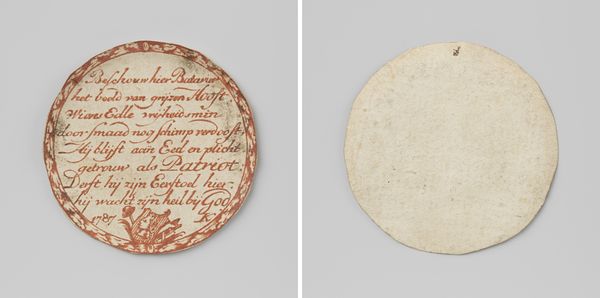 Beschouw hier Batavier
het beeld van grijzen Hooft
Wiens Edle vrijheidsmin
door smaad nog schimp verdooft
Hij blijft aan Eed en plicht
getrouw als Patriot:
Derft hij zijn Eerstoel hier
hij wacht zijn heil by God
1787 K